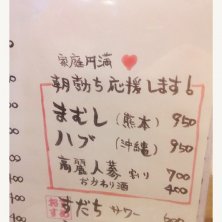 家庭円満 ❤
朝勃ち応援します!
まむし(熊本) 950
ハブ(沖縄) 950
高麗人蔘割り 700
おかわり酒 400
おすすめ すだちサワー
00
00
00